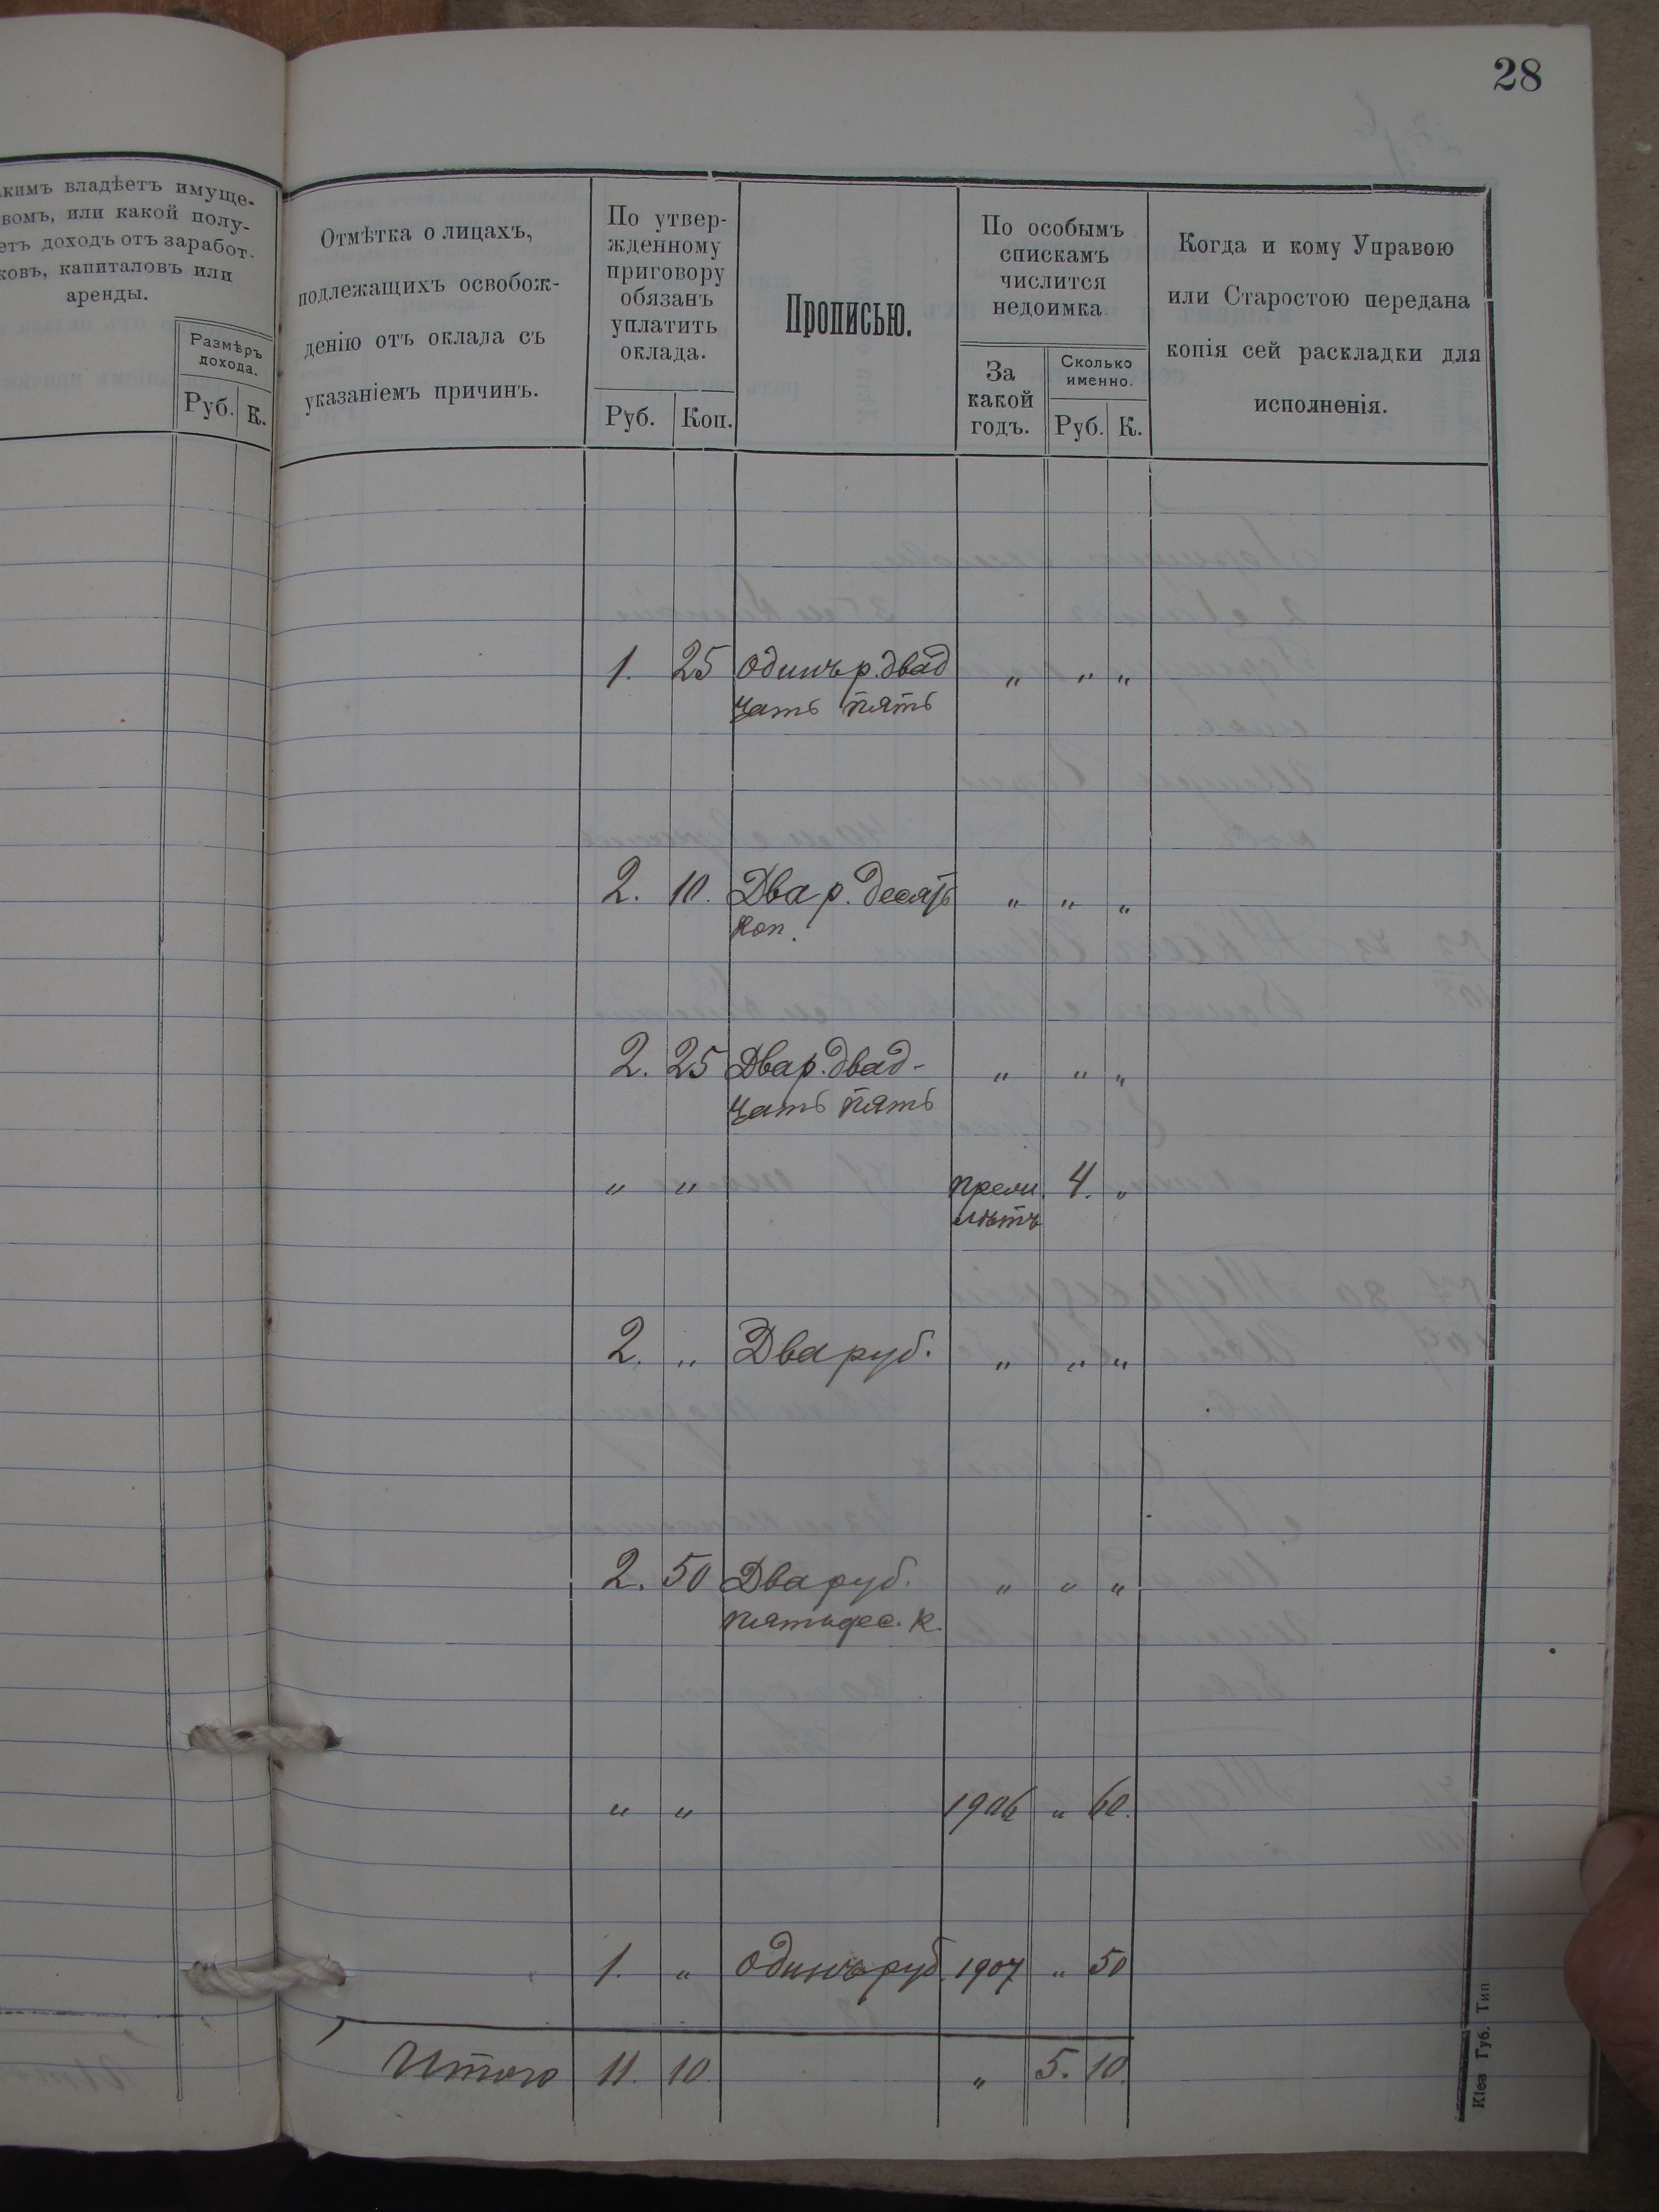 28
вомъ, или какой полу-
доходъ отъ заработ.
капиталовъ или
аренды.
Размѣръ
дохода.
Руб. К.
Отмѣтка о лицахъ,
подлежащихъ освобож-
денію отъ оклада съ
указаніемъ причинъ.
По утвер-
жденному
приговору
обязанъ
уплатить
оклада.
Руб. Коп.
Прописью.
По особымъ
спискамъ
числится
недоимка.
За
какой
годъ.
Сколько
именно.
Руб. К.
Когда и кому Управою
или Старостою передана
копія сей раскладки для
исполненія.
1. 25 Одинъ р. двад „ „ „
цать пять
2. 10. Два р. десять „ „ „
коп.
2. 25 Два р. двад- „ „ „
цать пять
„ „ 4. „
лѣтъ
2. „ Два руб. „ „ „
2. 50 Два руб. „ „ „
пятьдес. к.
„ „ 1906 „ 60.
1. „ Одинъ руб. 1907 „ 50
Итого 11. 10. „ 5. 10.
Губ. Тип